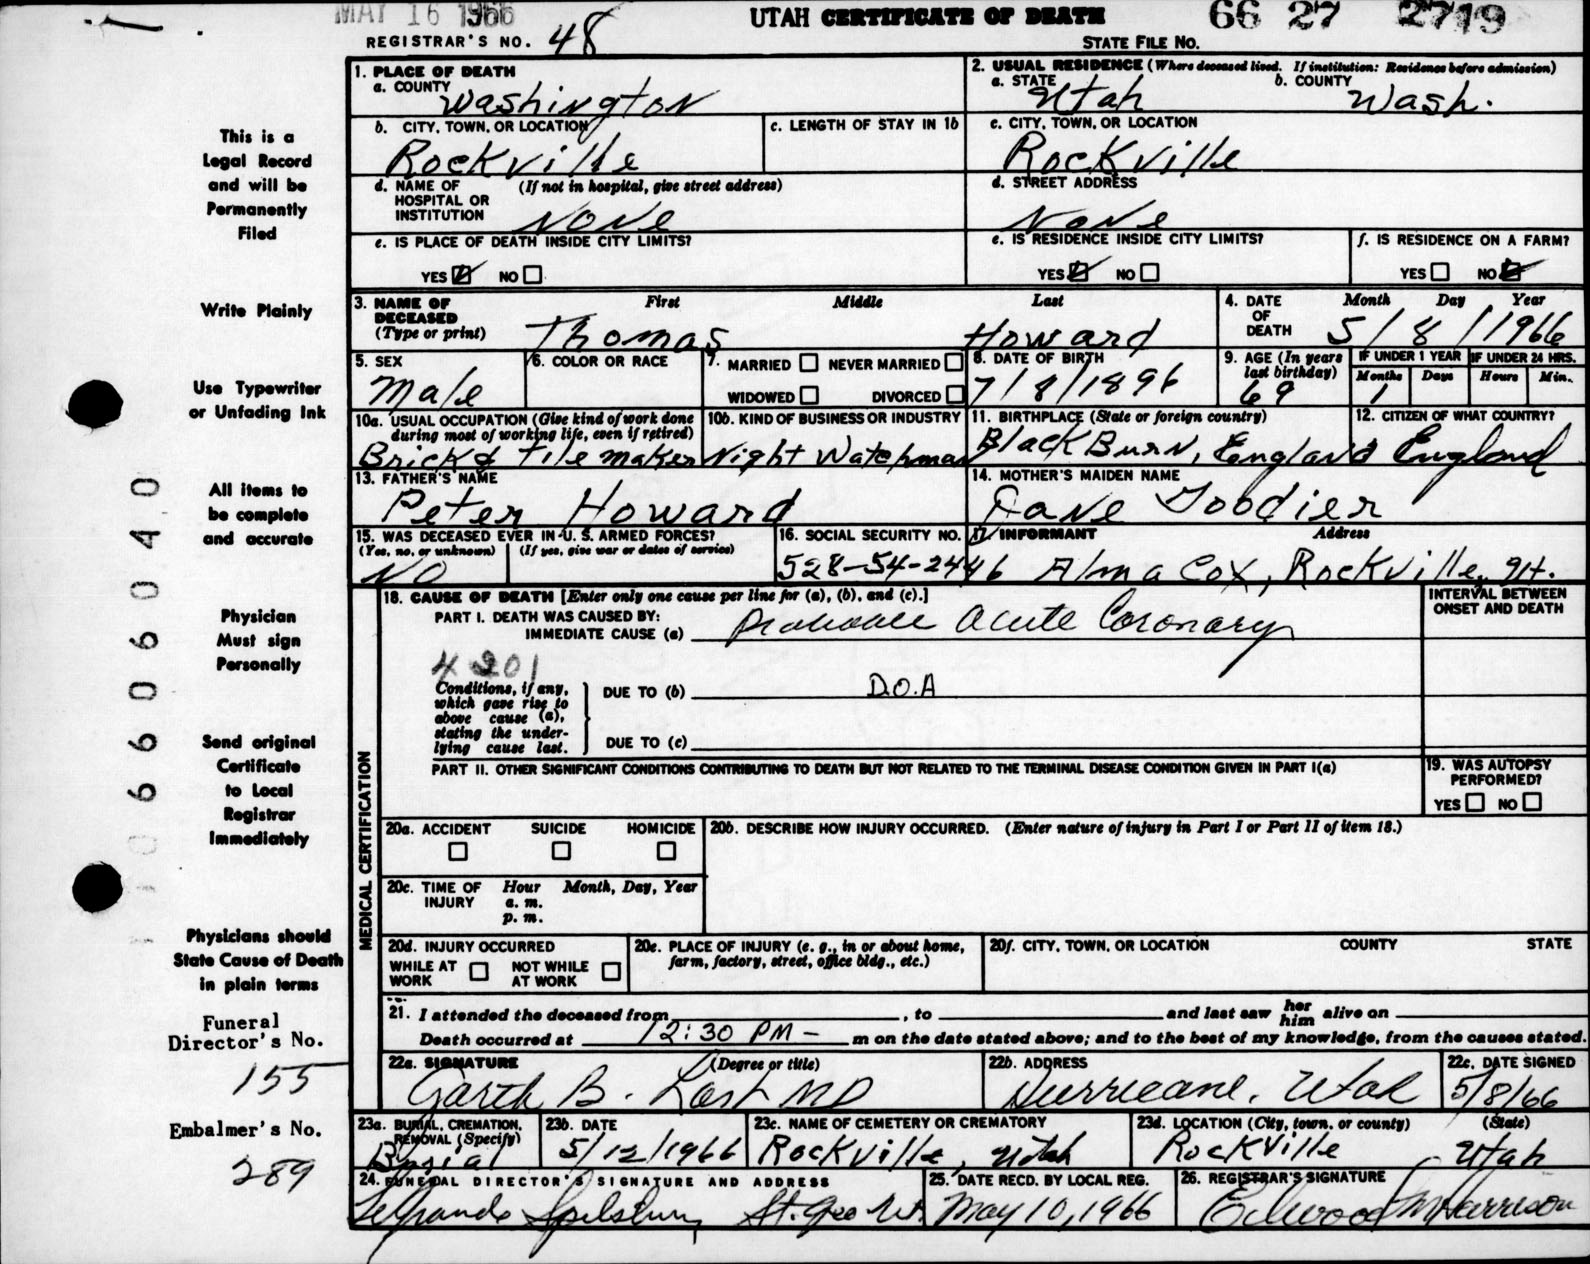 MAY 16 1966
UTAH CERTIFICATE OF DEATH
66 27 2719
REGISTRAR'S NO. 48
STATE FILE NO.
This is a
Legal Record
and will be
Permanently
Filed
Write Plainly
Use Typewriter
or Unfading Ink
All items to
be complete
and accurate
Physician
Must sign
Personally
Send original
Certificate
to Local
Registrar
Immediately
Physicians should
State Cause of Death
in plain terms
Funeral
Director's No.
155
Embalmer's No.
289
0 6 6 0 6 0 4 0
1. PLACE OF DEATH
a. COUNTY Washington
2. USUAL RESIDENCE (Where deceased lived. If institution: Residence before admission)
a. STATE Utah b. COUNTY Wash.
b. CITY, TOWN, OR LOCATION Rockville
c. LENGTH OF STAY IN 1b
c. CITY, TOWN, OR LOCATION Rockville
d. NAME OF (If not in hospital, give street address)
HOSPITAL OR
INSTITUTION None
d. STREET ADDRESS None
e. IS PLACE OF DEATH INSIDE CITY LIMITS?
YES NO
e. IS RESIDENCE INSIDE CITY LIMITS?
YES NO
f. IS RESIDENCE ON A FARM?
YES NO
3. NAME OF DECEASED (Type or print) First Middle Last
Thomas Howard
4. DATE OF DEATH Month Day Year
5/8/1966
5. SEX Male
6. COLOR OR RACE
7. MARRIED NEVER MARRIED
WIDOWED DIVORCED
8. DATE OF BIRTH
7/8/1896
9. AGE (In years last birthday) 69
IF UNDER 1 YEAR IF UNDER 24 HRS.
Months Days Hours Min.
10a. USUAL OCCUPATION (Give kind of work done
during most of working life, even if retired)
Brick & Tile Maker
10b. KIND OF BUSINESS OR INDUSTRY
Night Watchman
11. BIRTHPLACE (State or foreign country)
BlackBurn, England
12. CITIZEN OF WHAT COUNTRY?
England
13. FATHER'S NAME
Peter Howard
14. MOTHER'S MAIDEN NAME
Jane Goodier
15. WAS DECEASED EVER IN U. S. ARMED FORCES?
(Yes, no, or unknown) (If yes, give war or dates of service)
NO
16. SOCIAL SECURITY NO.
528-54-2446
17. INFORMANT Address
Alma Cox, Rockville, Ut.
18. CAUSE OF DEATH [Enter only one cause per line for (a), (b), and (c).]
INTERVAL BETWEEN
ONSET AND DEATH
PART I. DEATH WAS CAUSED BY:
IMMEDIATE CAUSE (a) Probable Acute Coronary
4201
Conditions, if any,
which gave rise to
above cause (a),
stating the under-
lying cause last.
DUE TO (b) D.O.A
DUE TO (c)
PART II. OTHER SIGNIFICANT CONDITIONS CONTRIBUTING TO DEATH BUT NOT RELATED TO THE TERMINAL DISEASE CONDITION GIVEN IN PART I(a)
19. WAS AUTOPSY
PERFORMED?
YES NO
MEDICAL CERTIFICATION
20a. ACCIDENT SUICIDE HOMICIDE
20b. DESCRIBE HOW INJURY OCCURRED. (Enter nature of injury in Part I or Part II of item 18.)
20c. TIME OF INJURY Hour Month, Day, Year
a. m.
p. m.
20d. INJURY OCCURRED
WHILE AT WORK NOT WHILE AT WORK
20e. PLACE OF INJURY (e. g., in or about home,
farm, factory, street, office bldg., etc.)
20f. CITY, TOWN, OR LOCATION COUNTY STATE
21. I attended the deceased from , to and last saw her him alive on
Death occurred at 12:30 PM - m on the date stated above; and to the best of my knowledge, from the causes stated.
22a. SIGNATURE (Degree or title)
Garth B. Last MD
22b. ADDRESS
Hurricane, Utah
22c. DATE SIGNED
5/8/66
23a. BURIAL, CREMATION,
REMOVAL (Specify)
Burial
23b. DATE
5/12/1966
23c. NAME OF CEMETERY OR CREMATORY
Rockville, Utah
23d. LOCATION (City, town, or county) (State)
Rockville Utah
24. FUNERAL DIRECTOR'S SIGNATURE AND ADDRESS
LeGrande Spilsbury St. Geo Ut.
25. DATE RECD. BY LOCAL REG.
May 10, 1966
26. REGISTRAR'S SIGNATURE
Elwood M Harrison